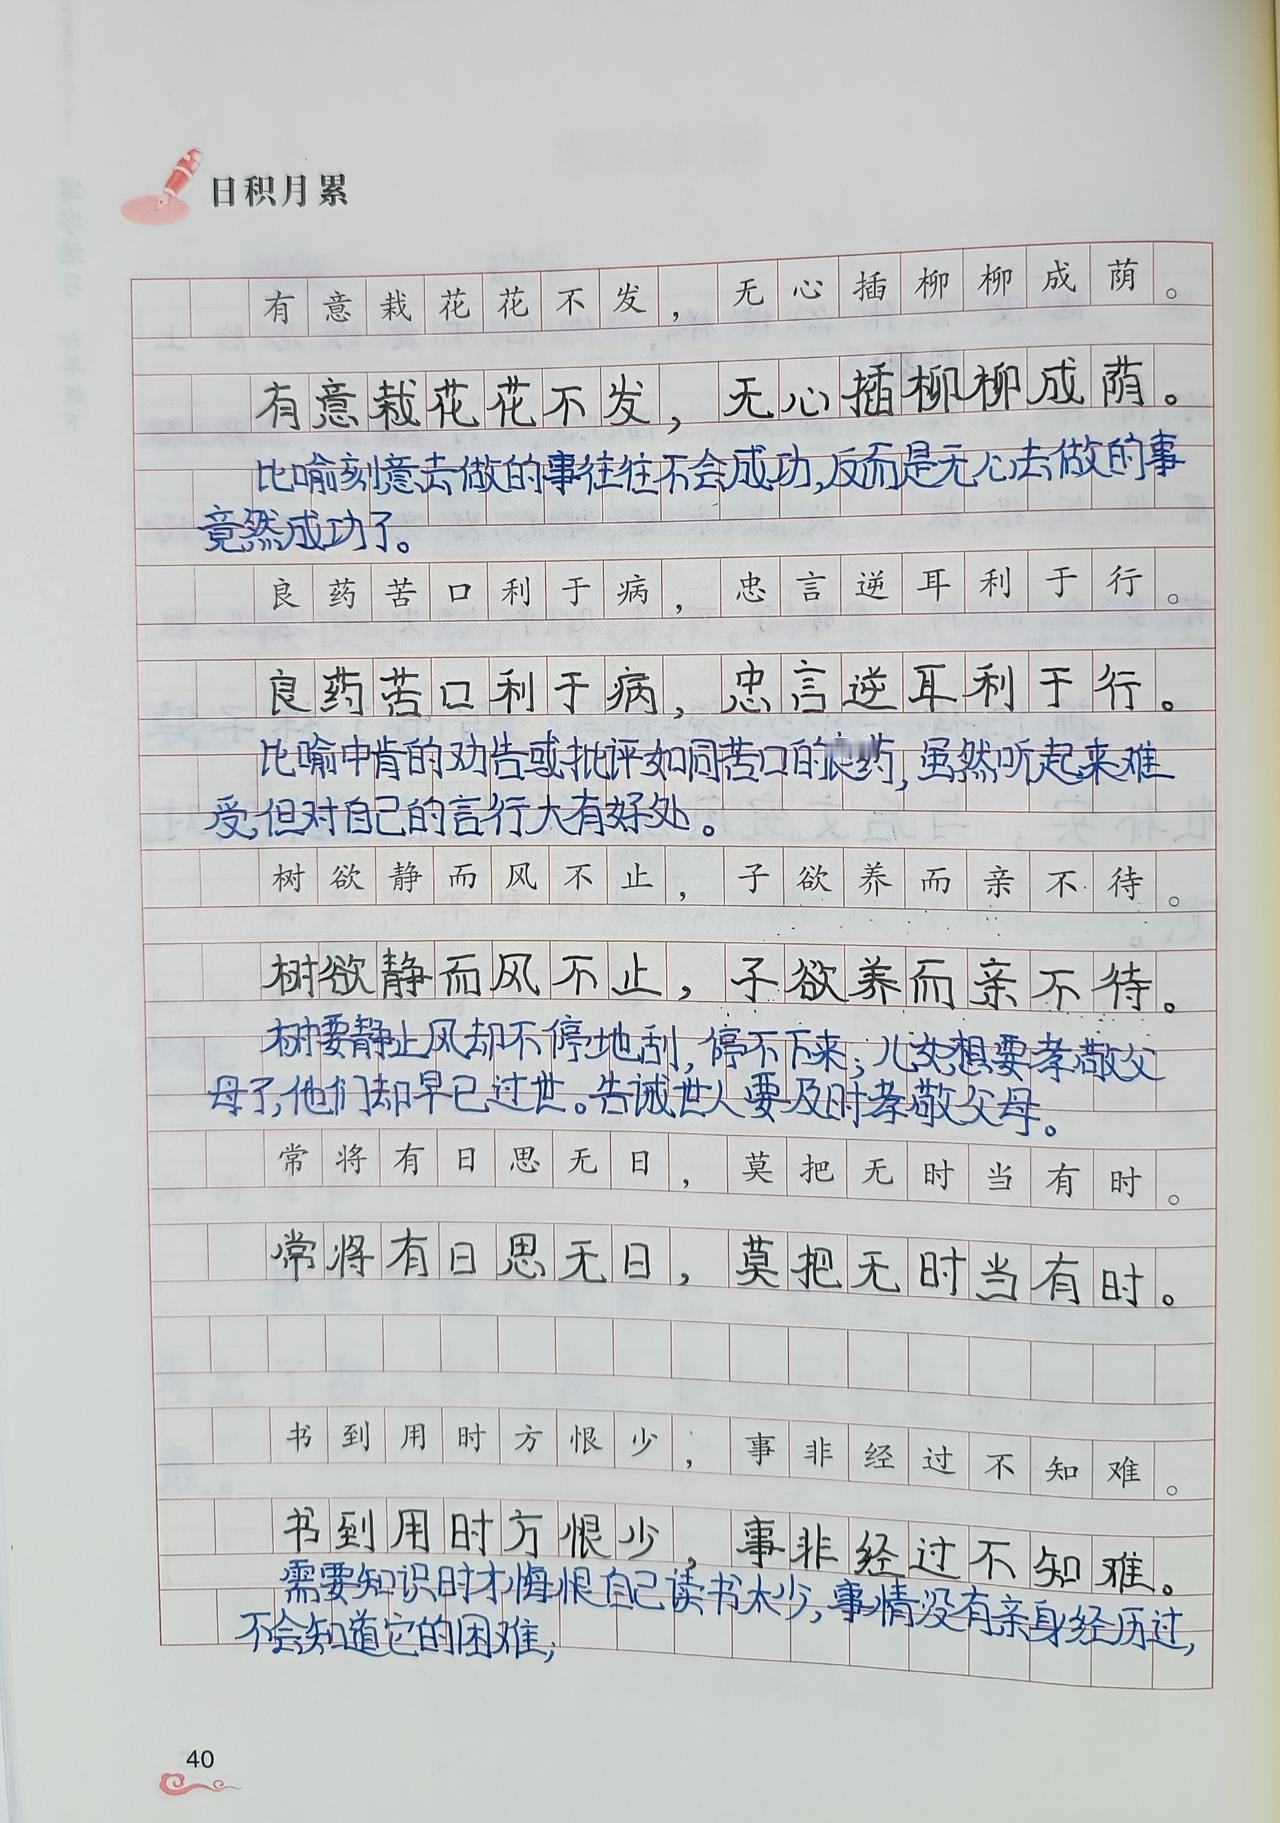 日积月累
有意栽花花不发，无心插柳柳成荫。
有意栽花花不发，无心插柳柳成荫。
比喻刻意去做的事往往不会成功，反而是无心去做的事
竟然成功了。
良药苦口利于病，忠言逆耳利于行。
良药苦口利于病，忠言逆耳利于行。
比喻中肯的劝告或批评如同苦口的良药，虽然听起来难
受，但对自己的言行大有好处。
树欲静而风不止，子欲养而亲不待。
树欲静而风不止，子欲养而亲不待。
树要静止风却不停地刮，停不下来；儿女想要孝敬父
母了，他们却早已过世。告诫世人要及时孝敬父母。
常将有日思无日，莫把无时当有时。
常将有日思无日，莫把无时当有时。
书到用时方恨少，事非经过不知难。
书到用时方恨少，事非经过不知难。
需要知识时才悔恨自己读书太少，事情没有亲身经历过，
不会知道它的困难；
40